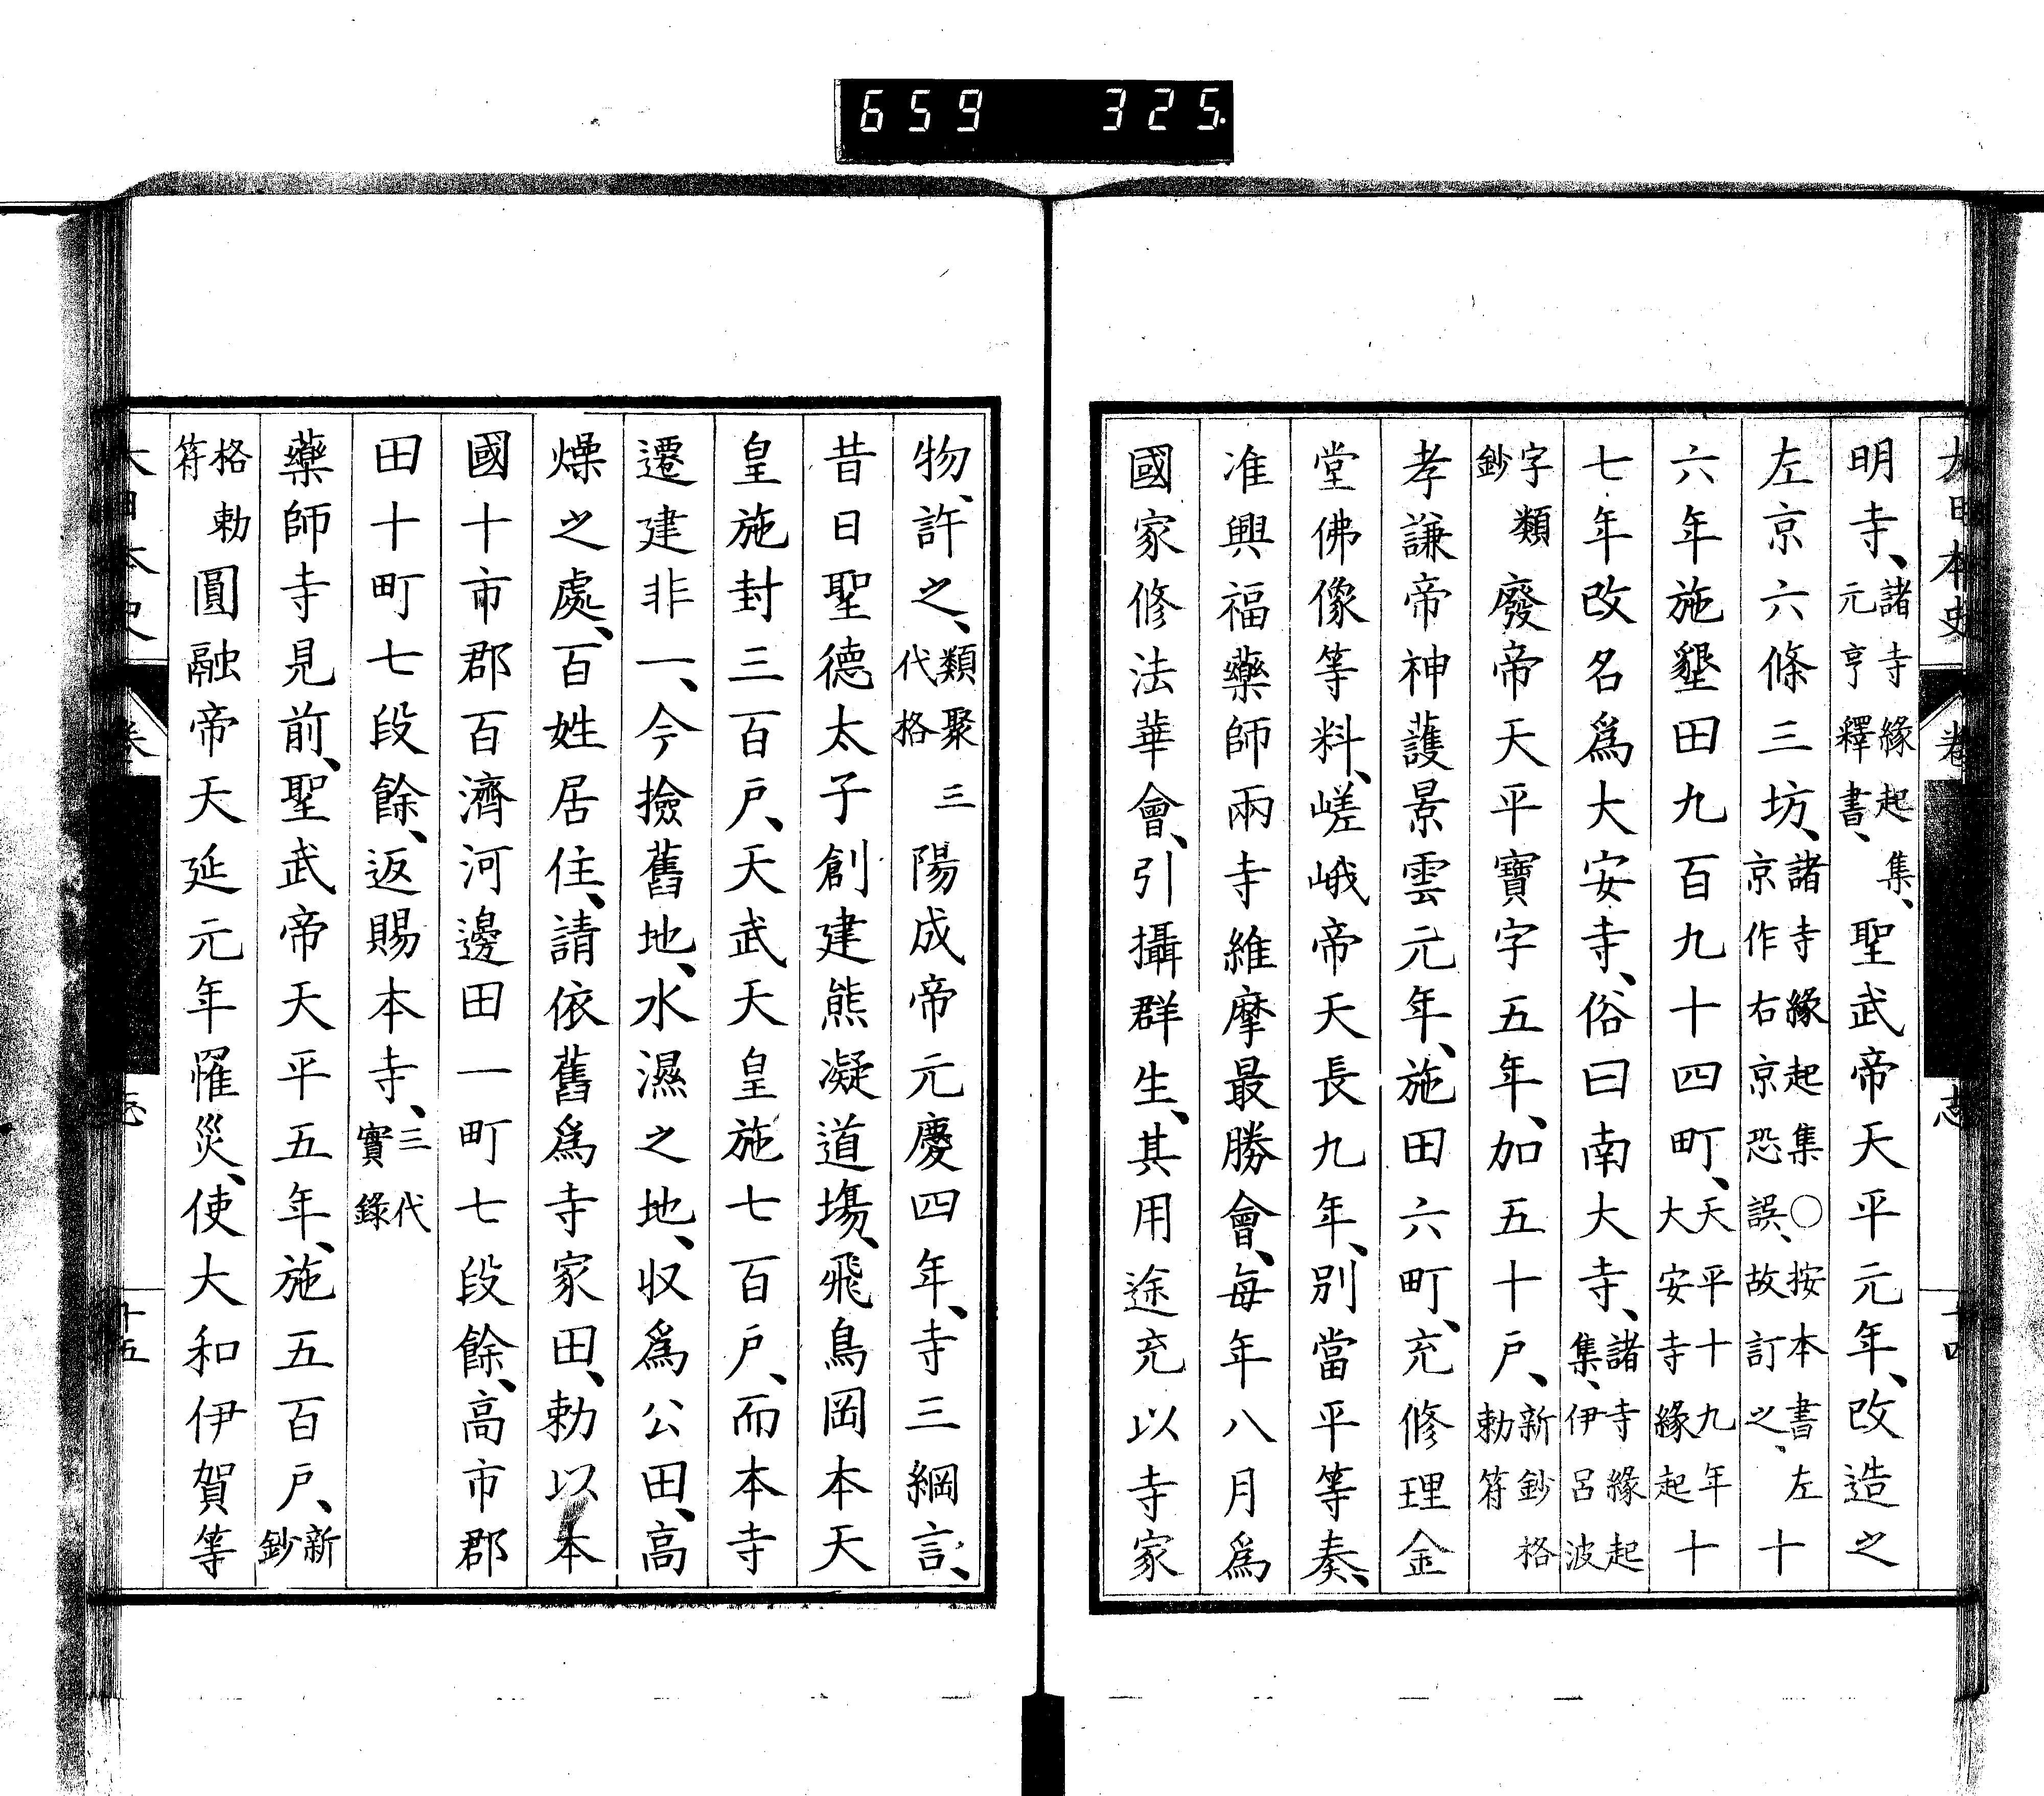 659 325
大日本史 卷 志 十四
明寺、諸寺緣起集、元亨釋書、聖武帝天平元年、改造之
左京六條三坊、諸寺緣起集○按本書左京作右京恐誤、故訂之、十
六年施墾田九百九十四町、天平十九年大安寺緣起十
七年改名爲大安寺、俗曰南大寺、諸寺緣起集、伊呂波
字類鈔廢帝天平寶字五年、加五十戶、新鈔格勅符
孝謙帝神護景雲元年、施田六町、充修理金
堂佛像等料、嵯峨帝天長九年、別當平等奏、
准興福藥師兩寺維摩最勝會、每年八月爲
國家修法華會、引攝群生、其用途充以寺家
物、許之、類聚三代格陽成帝元慶四年、寺三綱言、
昔日聖德太子創建熊凝道場、飛鳥岡本天
皇施封三百戶、天武天皇施七百戶、而本寺
遷建非一、今撿舊地、水濕之地、収爲公田、高
燥之處、百姓居住、請依舊爲寺家田、勅以本
國十市郡百濟河邊田一町七段餘、高市郡
田十町七段餘、返賜本寺、三代實錄
藥師寺見前、聖武帝天平五年、施五百戶、新鈔
格勅符圓融帝天延元年罹災、使大和伊賀等
大日本史 卷 志 十五